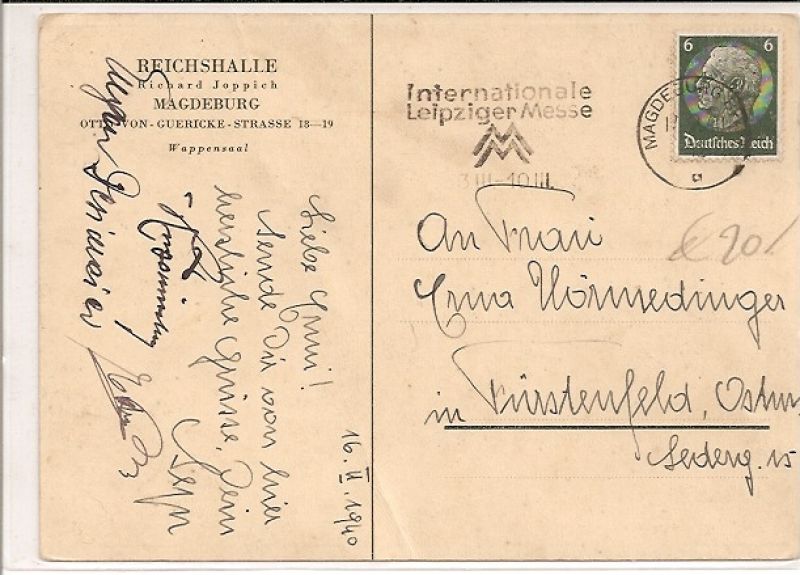 REICHSHALLE
Richard Joppich
MAGDEBURG
OTTO-VON-GUERICKE-STRASSE 18—19
Wappensaal
Liebe Emmi!
Sende Dir von hier
herzliche Grüsse, Dein
Sepp
16. II. 1940
Internationale
Leipziger Messe
MM
3.III-10.III.
MAGDEBURG
a
6 6
Deutsches Reich
An Frau
Erna Hörmedinger
in Fürstenfeld, Ostm
15
€ 20/